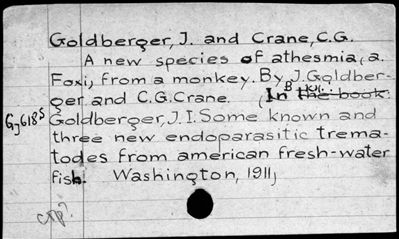 Goldberger, J. and Crane, C.G.
A new species of athesmia, a.
Foxi, from a monkey. By J. Goldber-
ger and C.G. Crane. (In the book:
G J618S Goldberger, J. I. Some known and
three new endoparasitic trema-
todes from american fresh-water
fish. Washington, 1911,